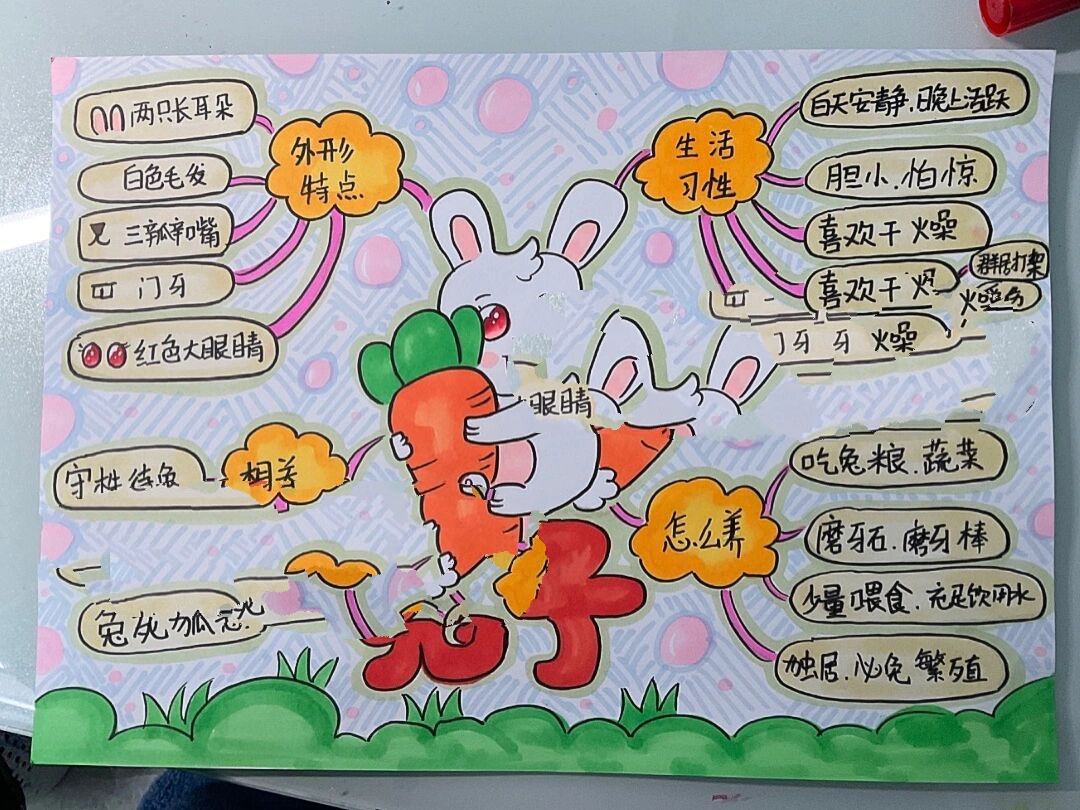 两只长耳朵
白色毛发
三瓣嘴
门牙
红色大眼睛
外形
特点
生活
习性
白天安静.晚上活跃
胆小.怕惊
喜欢干燥
喜欢干
群居打架
门牙 牙 燥
眼睛
守
兔死
子
怎么养
吃兔粮.蔬菜
磨牙石.磨牙棒
少量喂食.充足饮用水
独居.必免繁殖